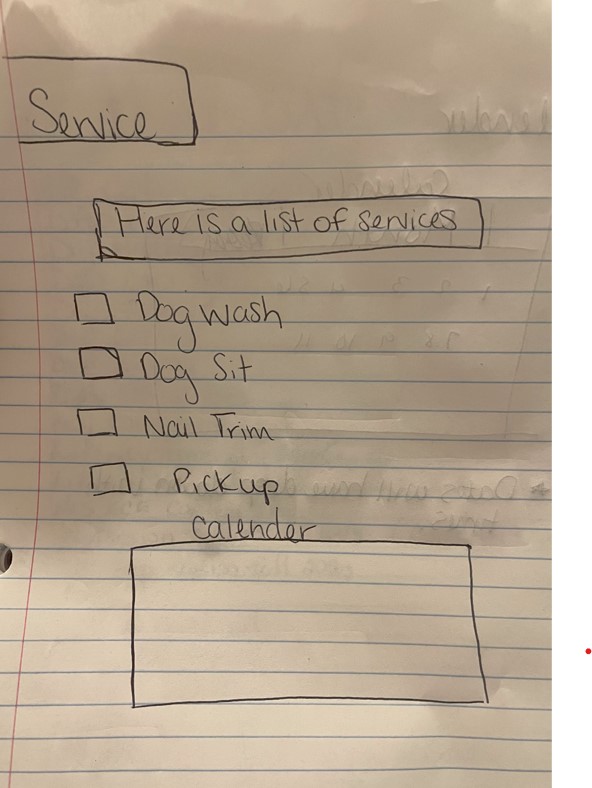 Service
Here is a list of services
Dog wash
Dog Sit
Nail Trim
Pickup
Calender